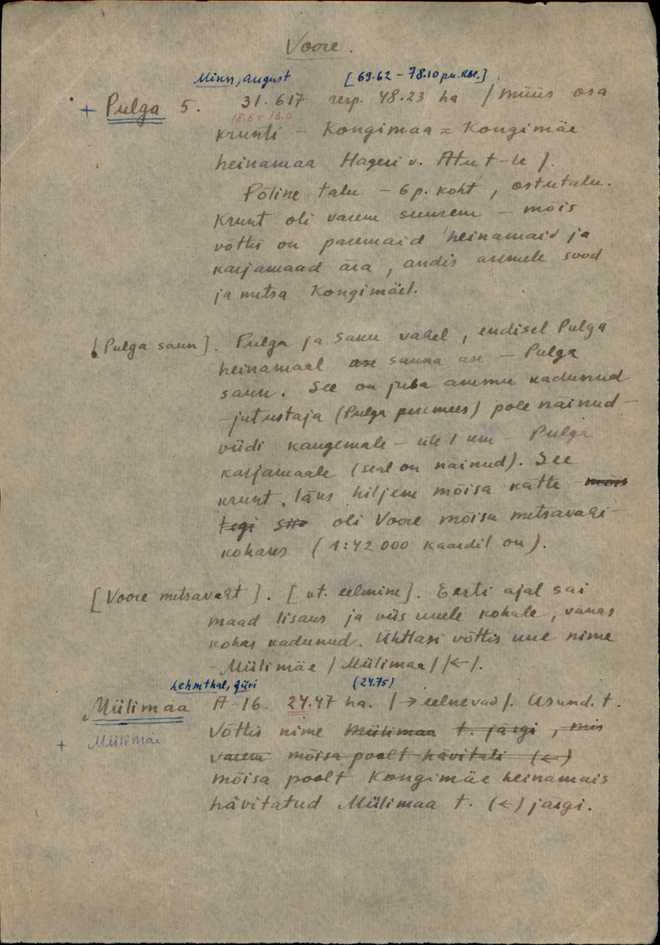 Voore.
Minn, August [69.62 – 78.10 pu.
+ Pulga 5. 31.617 resp. 48.23 ha / müüs osa
krunti – Kongimaa = Kongimäe
heinamaa Hageri v. Atu t-le /.
Põline talu – 6 p. koht, ostutalu.
Krunt oli varem suurem – mõis
võttis on paremaid heinamaid ja
karjamaad ära, andis asemele sood
ja metsa Kongimäel.
[Pulga saun]. Pulga ja Sanu vahel, endisel Pulga
heinamaal sauna ase – Pulga
saun. See on juba ammu kadunud
– jutustaja (Pulga peremees) pole näinud –
viidi kaugemale – üle 1 km Pulga
karjamaale (seal on näinud). See
krunt läks hiljem mõisa kätte
oli Voore mõisa metsavahi-
kohaks (1:42 000 kaardil on).
[Voore metsavaht]. [vt. eelmine]. Eesti ajal sai
maad lisaks ja viis uuele kohale, vanas
kohas kadunud. Ühtlasi võttis uue nime
– Müilimäe / Müilimaa / /←/.
Lehmthal, Jüri (24.75)
Müilimaa A-16. 24.47 ha. /→ eelnevad/. Asund. t.
+ Müilimäe
Võttis nime Müilimaa t. järgi, mis
varem mõisa poolt hävitati (←)
mõisa poolt Kongimäe heinamais
hävitatud Müilimaa t. (←) järgi.